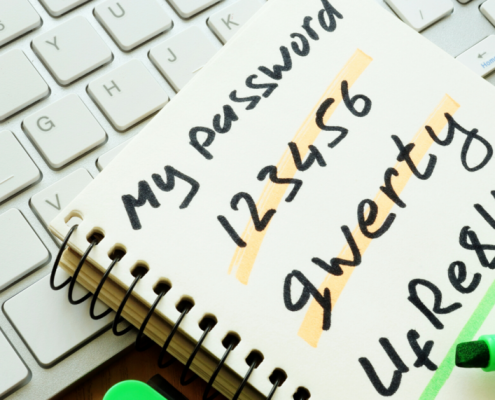 U
Y
J
H
G
V
My password
123456
qwerty